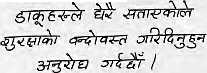 डाकूहरुले धेरै सताएकोले
सुरक्षाको वन्दोवस्त गरिदिनुहुन
अनुरोध गर्दछौँ ।